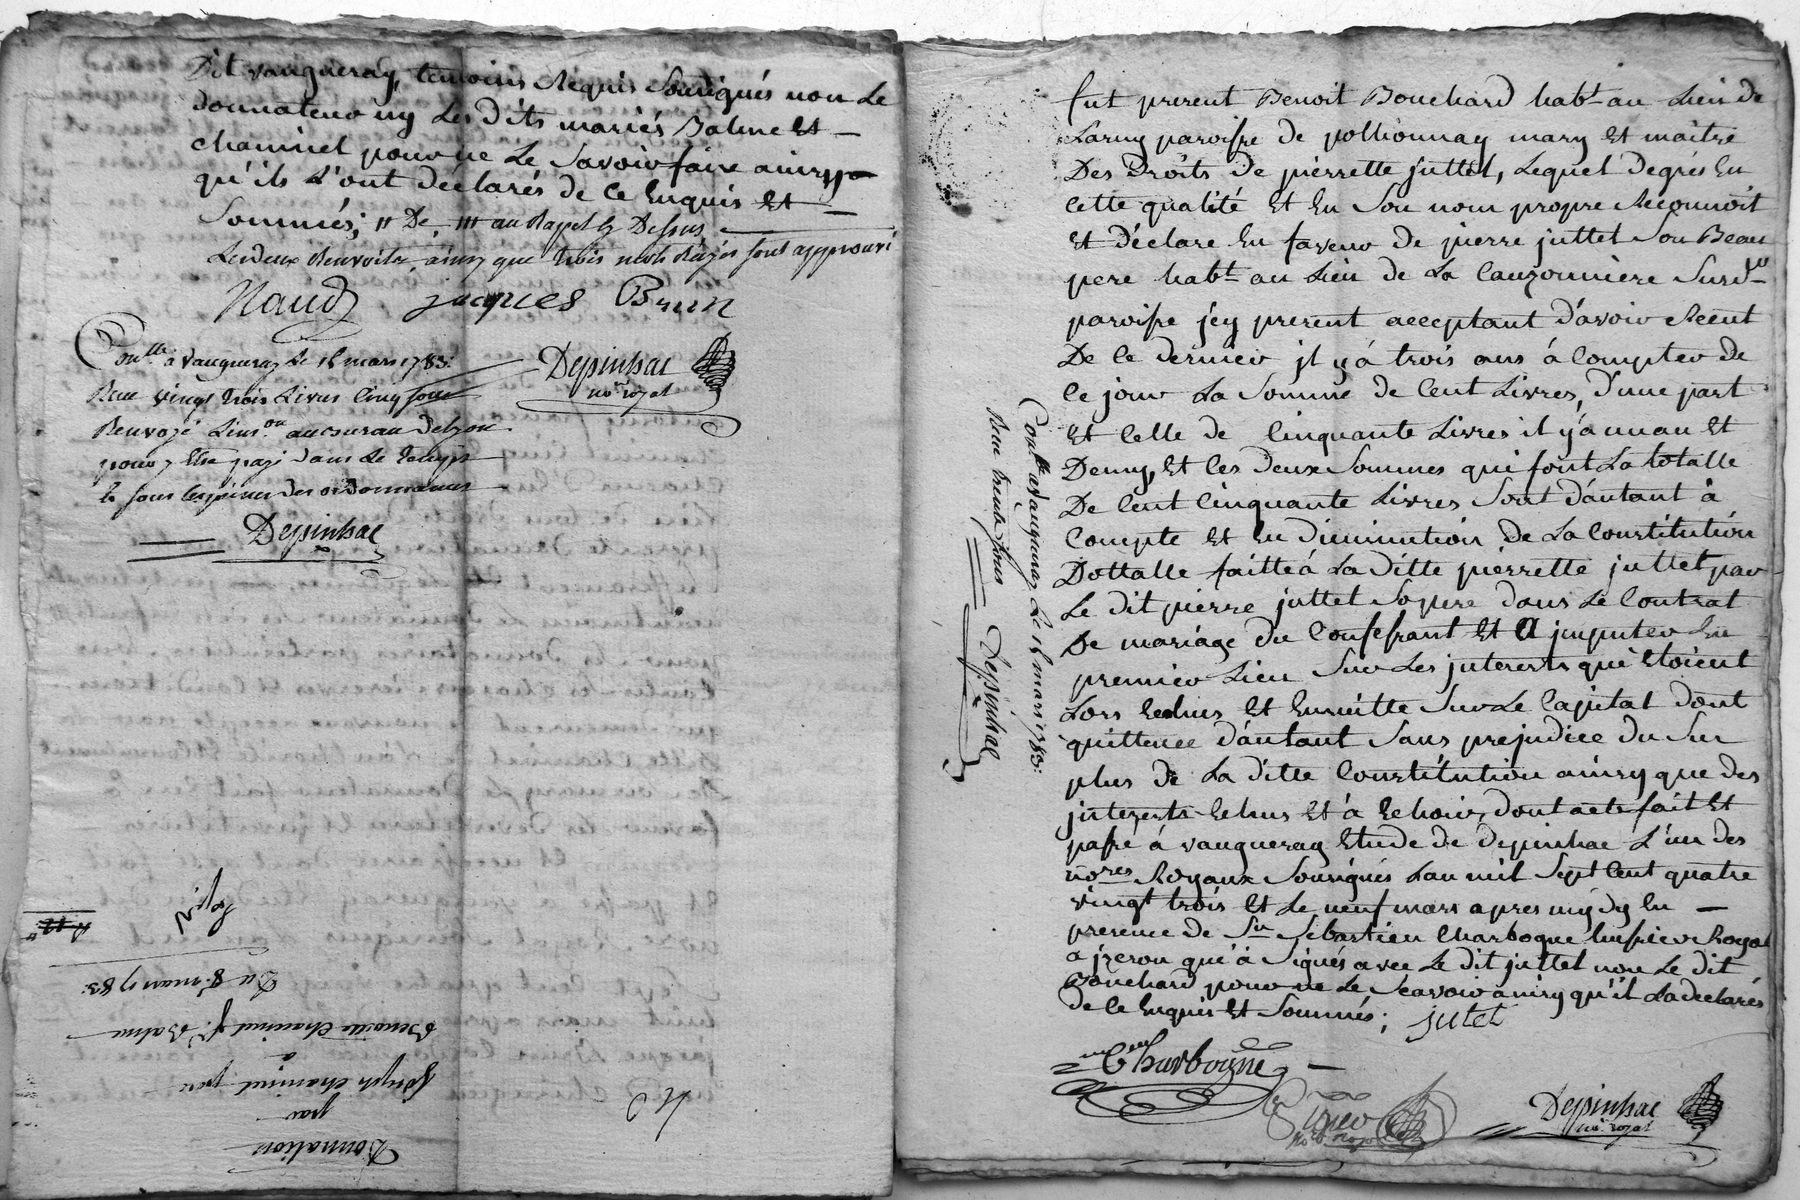 Dit vaugneray, temoins Requis Sousignés non Le
donnateur ny Les dits mariés Balme Et
chaminet pour ne Le Savoir faire ainsy
qu'ils L'ont déclarés de ce Enquis Et
Sommés;
Les deux Renvoits, ainsy que trois mots Rayés sont approuvé
Naud jacques Brun
Conllé a Vaugneray Le 15 mars 1783:
Depinhac
no.re royal
Reçu vingt trois Livres Cinq sous
Renvoyé L'insion au bureau de Lyon
pour y Etre payé dans Le temps
& sous Les peines des ordonnances
Depinhac
Donnation
par
joseph chaminet pere
a
Benoitte Chaminet f. Balme
Du 8. mars 1783.
fut present Benoit Bouchard habt. au Lieu de
Larny paroisse de pollionnay mary Et maitre
Des Droits de pierrette juttet, Lequel de grés En
cette qualité Et En Son nom propre Reconnoit
Et déclare En faveur de pierre juttet Son Beau
pere habt. au Lieu de La Cauzonniere Susd.
paroisse j'cy present acceptant d'avoir Recut
De Ce dernier jl y à trois ans à Compter de
Ce jour La Somme de Cent Livres, d'une part
Et Celle de Cinquante Livres il y a un an Et
Demy, Et Ces deux Sommes qui font La totalle
De Cent Cinquante Livres Sont d'autant à
Compte Et En diminution de La Constitution
Dottalle faitte à La ditte pierrette juttet par
Le dit pierre juttet So pere dans Le Contrat
De mariage du Confessant Et A jmputer En
premier Lieu Sur Les jnterests qui Etoient
Lors Echus Et Ensuitte Sur Le Capital dont
quittence d'autant Sans prejudice du Sur
plus de La ditte Constitution ainsy que des
jnterests Echus Et à Echoir, dont acte fait Et
passé à vaugneray Etude de depinhac L'un des
nores Royaux Sousignés L'an mil Sept Cent quatre
vingt trois Et Le neuf mars apres midy En
presence de Sr Sebastien Charbogne huissier Royal
a jzeron qui à Signés avec Le dit juttet non Le dit
Bouchard pour ne Le Scavoir ainsy qu'il La declarés
de ce Enquis Et Sommés; jutet
Charbogne
Depinhac
no. royal
Conllé a Vaugneray Le 15 mars 1783:
Reçu trente sous Depinhac